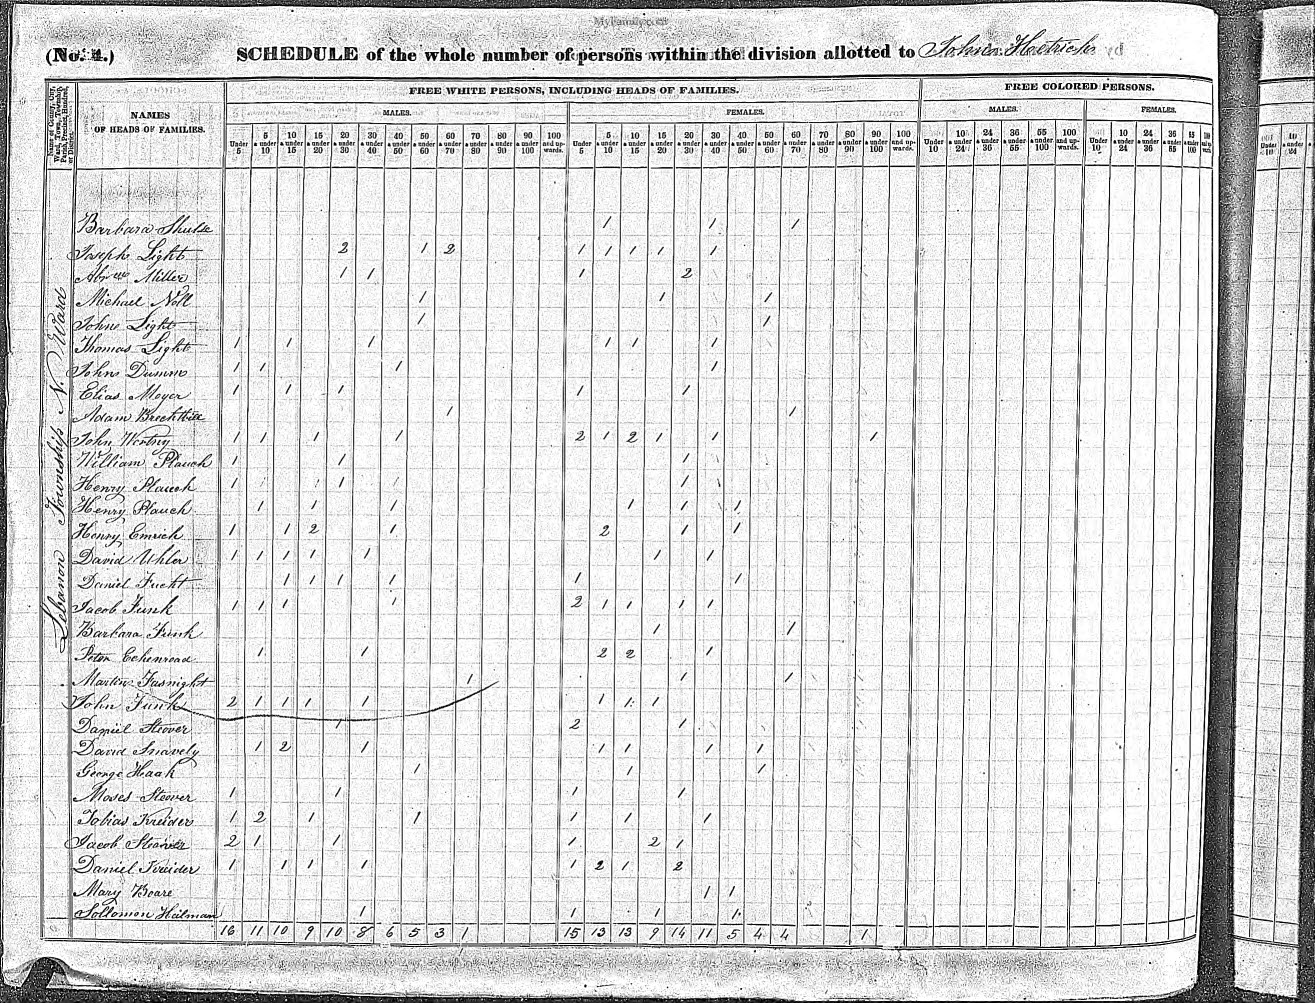 MyFamily.com
(No. 4.) SCHEDULE of the whole number of persons within the division allotted to John Hetrich by
Name of County, City, Ward, Town, Township, Parish, Precinct, Hundred, or District.
NAMES OF HEADS OF FAMILIES.
FREE WHITE PERSONS, INCLUDING HEADS OF FAMILIES. FREE COLORED PERSONS.
MALES. FEMALES. MALES. FEMALES.
Under 5 5 & under 10 10 & under 15 15 & under 20 20 & under 30 30 & under 40 40 & under 50 50 & under 60 60 & under 70 70 & under 80 80 & under 90 90 & under 100 100 and upwards. Under 5 5 & under 10 10 & under 15 15 & under 20 20 & under 30 30 & under 40 40 & under 50 50 & under 60 60 & under 70 70 & under 80 80 & under 90 90 & under 100 100 and upwards. Under 10 10 & under 24 24 & under 36 36 & under 55 55 & under 100 100 and upwards. Under 10 10 & under 24 24 & under 36 36 & under 55 55 & under 100 100 and upwards.
Lebanon Township N. Ward
Barbara 1 1 1
Joseph Light 2 1 2 1 1 1 1 1
Miller 1 1 1 2
Michael Noll 1 1 1
John Light 1 1
Thomas Light 1 1 1 1 1 1
John Dumm 1 1 1 1
Elias Meyer 1 1 1 1 1
Adam Brechtbill 1 1
John 1 1 1 1 2 1 2 1 1 1
William Plauch 1 1 1
Henry Plauch 1 1 1
Henry Plauch 1 1 1 1 1 1
Henry Emrich 1 1 2 1 2 1 1
David Uhler 1 1 1 1 1 1 1
Daniel Fucht 1 1 1 1 1 1
Jacob Funk 1 1 1 1 2 1 1 1 1
Barbara Funk 1 1
Peter Echenroad 1 1 2 2 1
Martin Fasnight 1 1 1
John Funk 2 1 1 1 1 1 1 1
Daniel Stover 1 2 1
David Snavely 1 2 1 1 1 1 1
George Haak 1 1 1
Moses Stoever 1 1 1 1
Tobias Kreider 1 2 1 1 1 1 1
Jacob Stoever 2 1 1 1 2 1
Daniel Kreider 1 1 1 1 1 2 1 2
Mary Boare 1 1
Sollomon Heilman 1 1 1 1
16 11 10 9 10 8 6 5 3 1 15 13 13 9 14 11 5 4 4 1